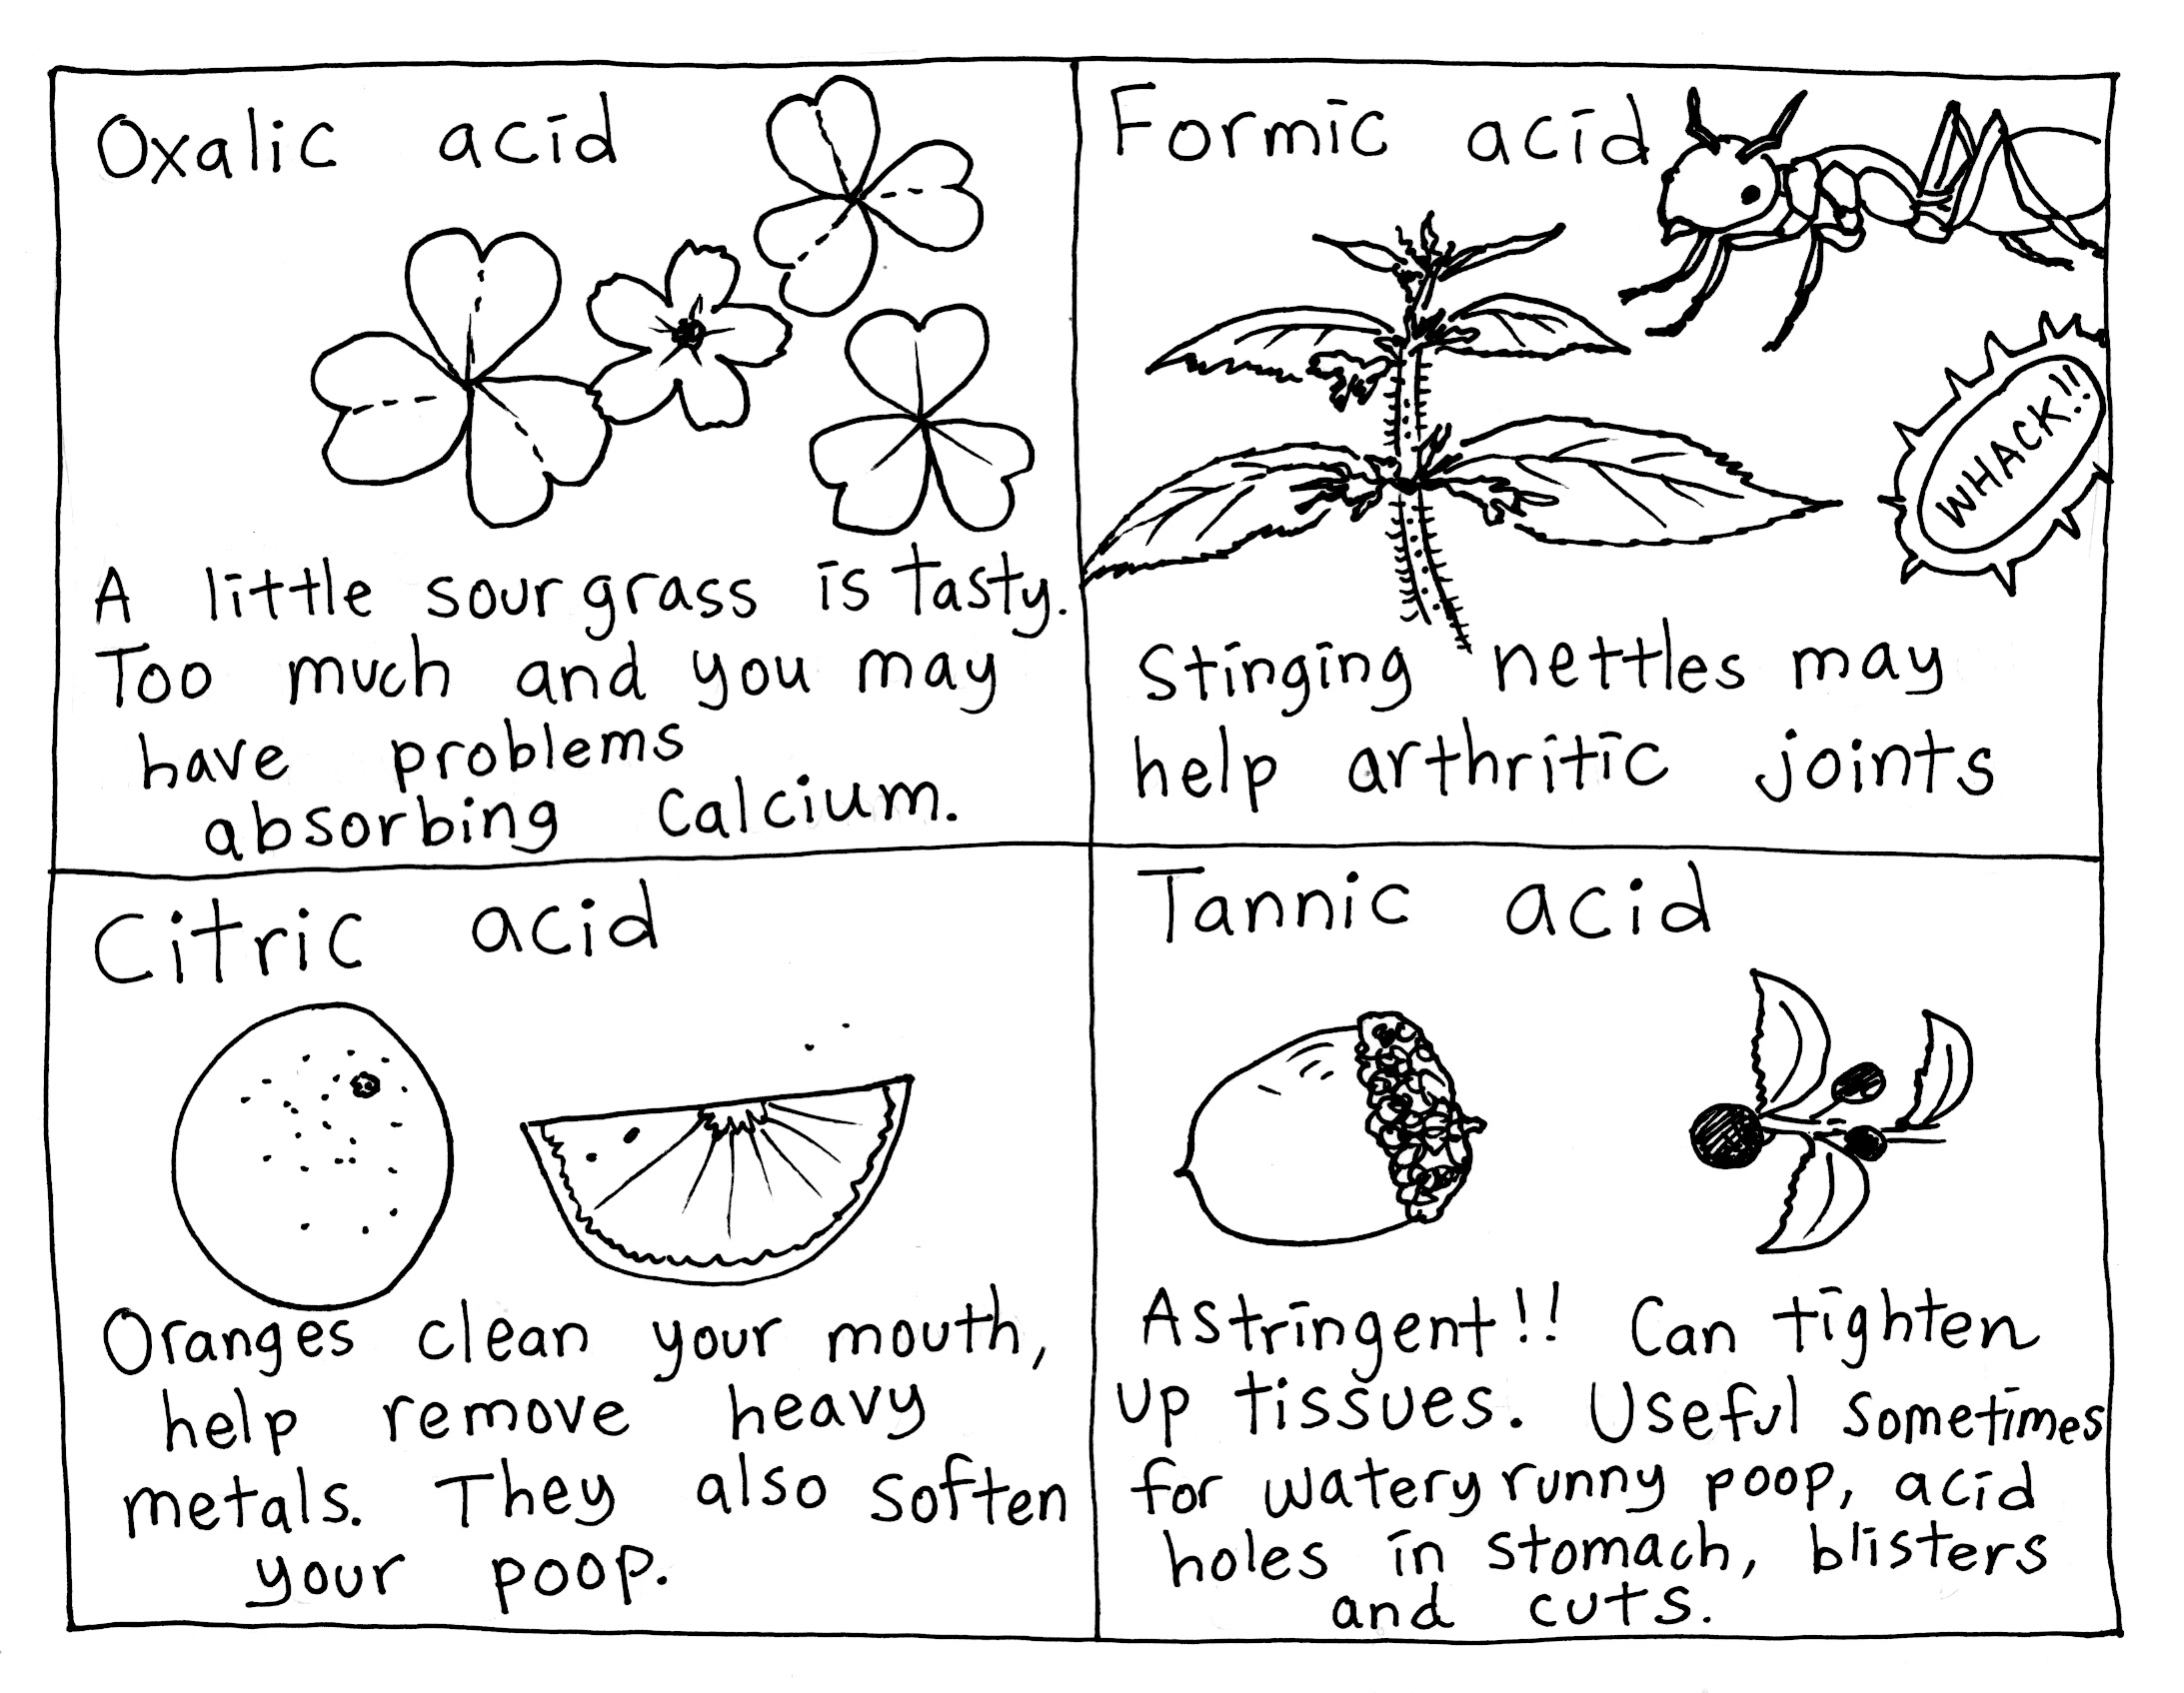 Oxalic acid
A little sour grass is tasty.
Too much and you may
have problems
absorbing calcium.
Formic acid
WHACK!!
Stinging nettles may
help arthritic joints
Citric acid
Oranges clean your mouth,
help remove heavy
metals. They also soften
your poop.
Tannic acid
Astringent!! Can tighten
up tissues. Useful sometimes
for watery runny poop, acid
holes in stomach, blisters
and cuts.